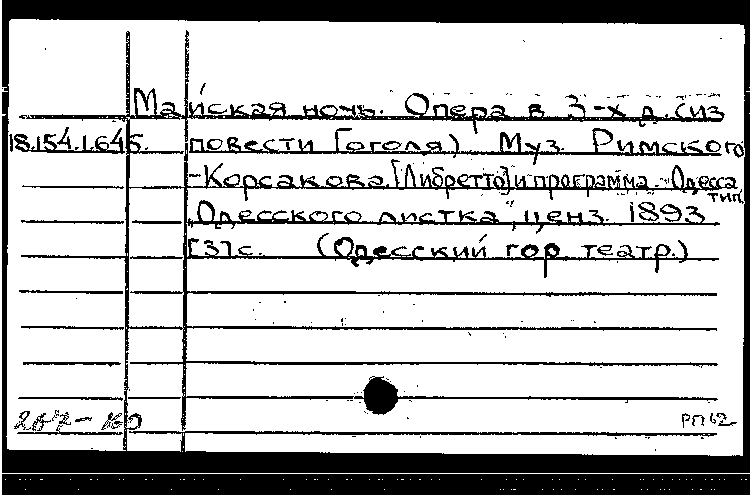 Майская ночь. Опера в 3-х д. (из
18.154.1.645. повести Гоголя) Муз. Римского
-Корсакова. [Либретто] и программа. Одесса
тип.
„Одесского листка", ценз. 1893
[3] с. (Одесский гор. театр.)
РП 62